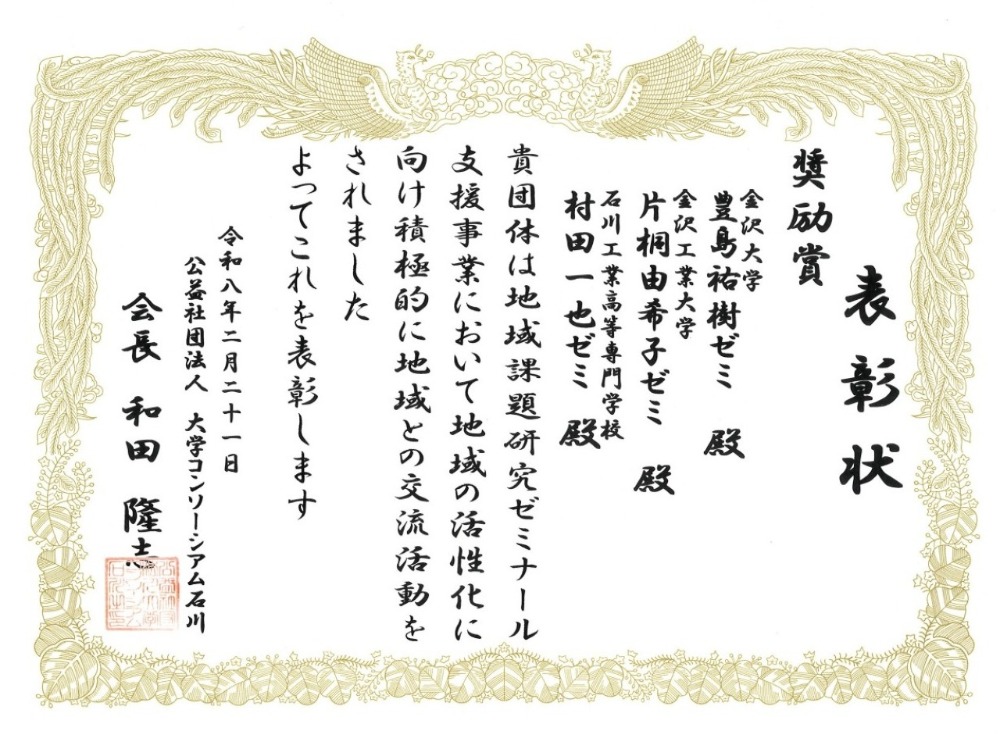 表彰状
奨励賞
金沢大学
豊島祐樹ゼミ 殿
金沢工業大学
片桐由希子ゼミ 殿
石川工業高等専門学校
村田一也ゼミ 殿
貴団体は地域課題研究ゼミナール
支援事業において地域の活性化に
向け積極的に地域との交流活動を
されました
よってこれを表彰します
令和八年二月二十一日
公益社団法人 大学コンソーシアム石川
会長 和田 隆志